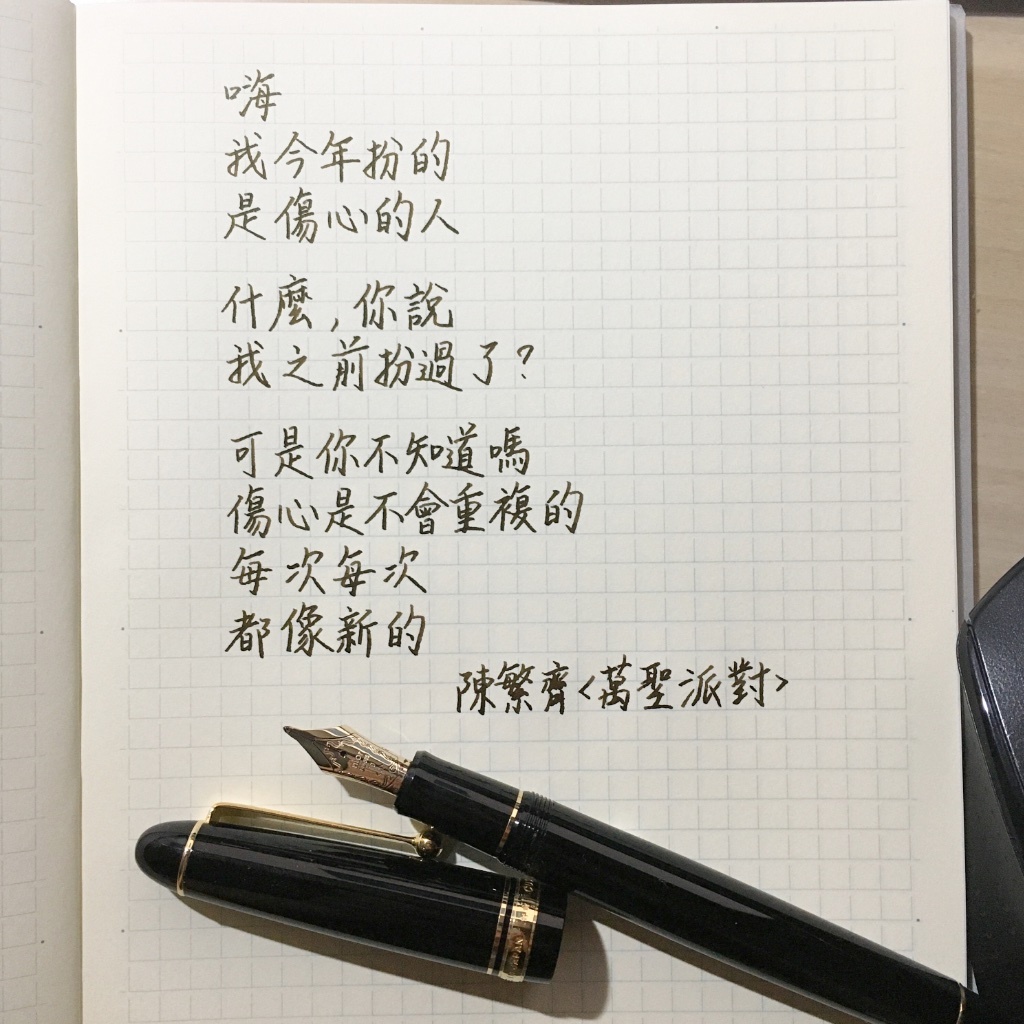 嗨
我今年扮的
是傷心的人
什麼，你說
我之前扮過了？
可是你不知道嗎
傷心是不會重複的
每次每次
都像新的
陳繁齊<萬聖派對>